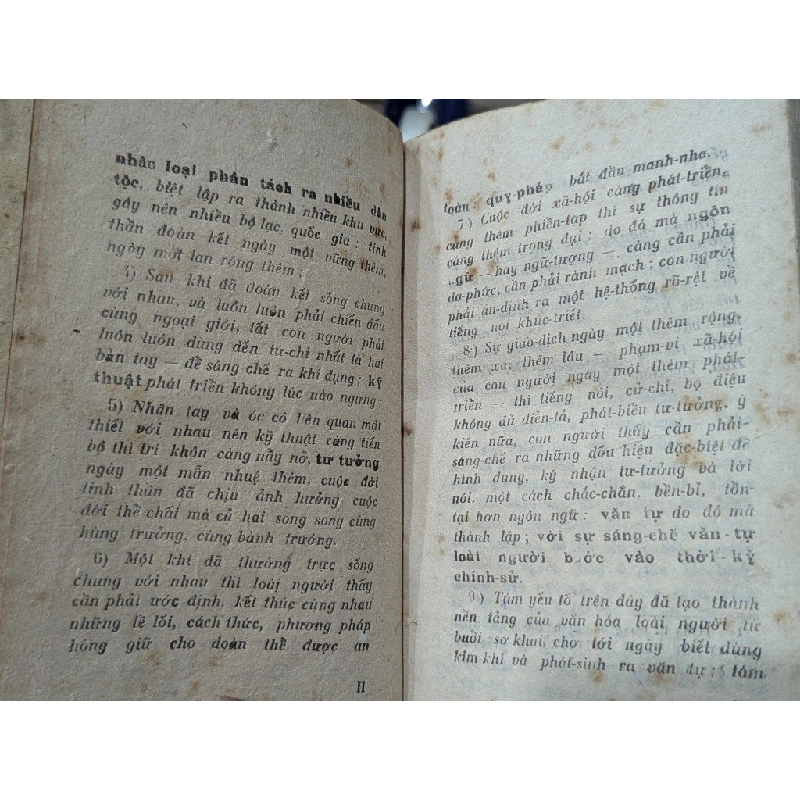 nhân loại phân tách ra nhiều dân
tộc, biệt lập ra thành nhiều khu vực,
gây nên nhiều bộ lạc, quốc gia ; tinh
thần đoàn kết ngày một vững thêm,
ngày một lan rộng thêm ;
4) Sau khi đã đoàn kết sống chung
với nhau, và luôn luôn phải chiến đấu
cùng ngoại giới, tất con người phải
luôn luôn dùng đến tứ-chi nhất là hai
bàn tay — để sáng chế ra khí dụng ; kỹ
thuật phát triển không lúc nào ngưng ;
5) Nhân tay và óc có liên quan mật
thiết với nhau nên kỹ thuật càng tiến
bộ thì trí khôn càng nẩy nở, tư tưởng
ngày một mẫn nhuệ thêm, cuộc đời
tinh thần đã chịu ảnh hưởng cuộc
đời thể chất mà cả hai song song cùng
hùng trưởng, cùng bành trướng.
6) Một khi đã thường trực sống
chung với nhau thì loài người thấy
cần phải ước định, kết thúc cùng nhau
những lề lối, cách thức, phương pháp
hòng giữ cho đoàn thể được an
II
toàn ; quy-pháp bắt đầu manh-nha.
7) Cuộc đời xã-hội càng phát-triển,
càng thêm phiền-tạp thì sự thông tin
càng thêm trọng đại ; do đó mà ngôn
ngữ — hay ngữ-tượng — càng cần phải
đa-phức, cần phải rành mạch ; con người
phải ấn-định ra một hệ-thống rõ-rệt về
tiếng nói khúc-triết.
8) Sự giao-dịch ngày một thêm rộng,
thêm xa, thêm lâu — phạm-vi xã-hội
của con người ngày một thêm phát-
triển — thì tiếng nói, cử-chỉ, bộ điệu
không đủ diễn-tả, phát-biểu tư-tưởng, ý
kiến nữa, con người thấy cần phải-
sáng-chế ra những dấu hiệu đặc-biệt để
hình dung, ký nhận tư-tưởng và lời
nói, một cách chắc-chắn, bền-bỉ, tồn-
tại hơn ngôn ngữ : văn tự do đó mà
thành lập ; với sự sáng-chế văn-tự
loài người bước vào thời-kỳ
chính-sử.
9) Tám yếu tố trên đây đã tạo thành
nền tảng của văn hóa loài người từ
buổi sơ khai, cho tới ngày biết dùng
kim-khí và phát-sinh ra văn tự ; tám